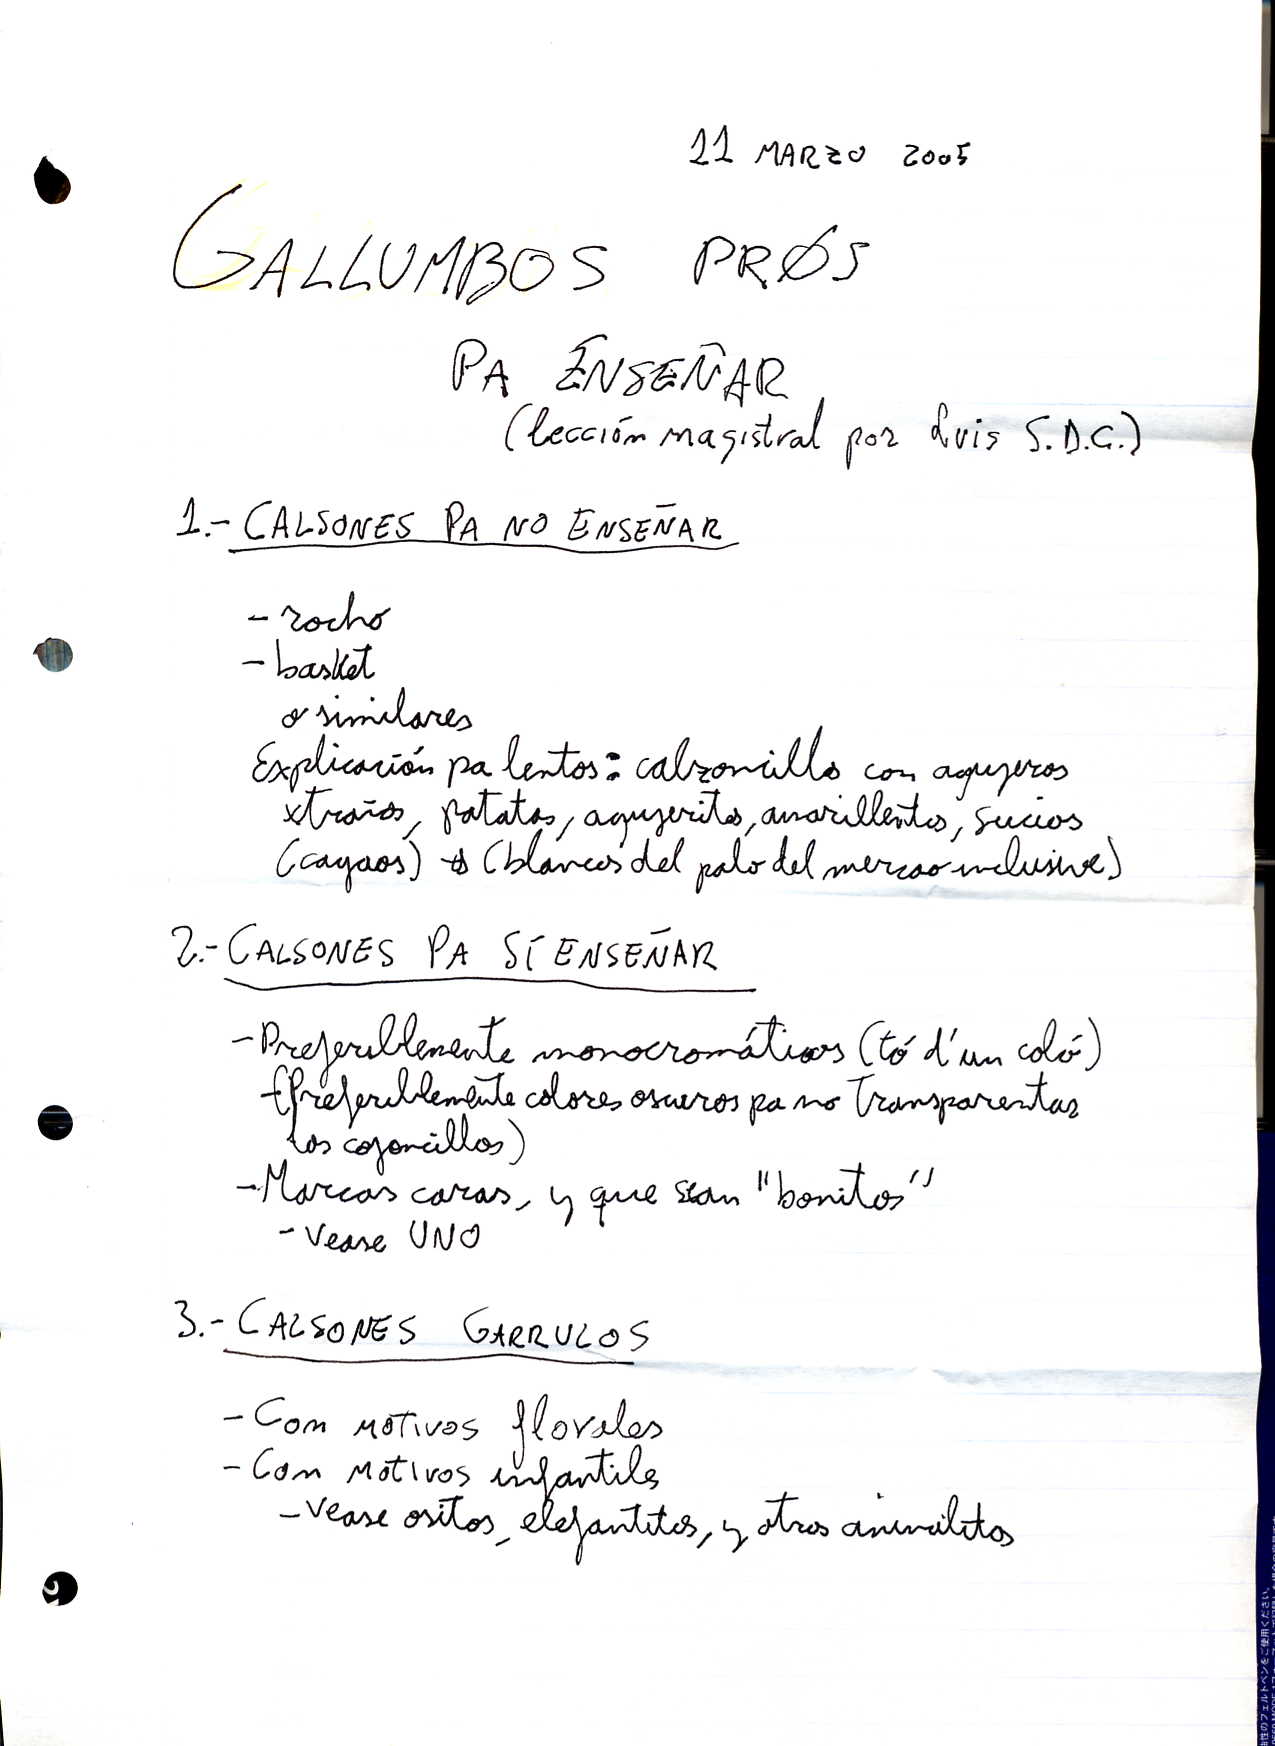 11 MARZO 2005
GALLUMBOS PRØS
PA ENSEÑAR
(lección magistral por Luis S.D.G.)
1.- CALSONES PA NO ENSEÑAR
- rocho
- basket
o similares
Explicación pa lentos: calzoncillo con agujeros
xtraños, patatas, agujeritos, amarillentos, sucios
(cagaos) (blancos del palo del mercao inclusive)
2.- CALSONES PA SÍ ENSEÑAR
- Preferiblemente monocromáticos (tó d'un coló)
(Preferiblemente colores oscuros pa no transparentar
los cojoncillos)
- Marcas caras, y que sean "bonitos"
- Vease UNO
3.- CALSONES GARRULOS
- Con motivos florales
- Con motivos infantiles
- Vease ositos, elefantitos, y otros animalitos